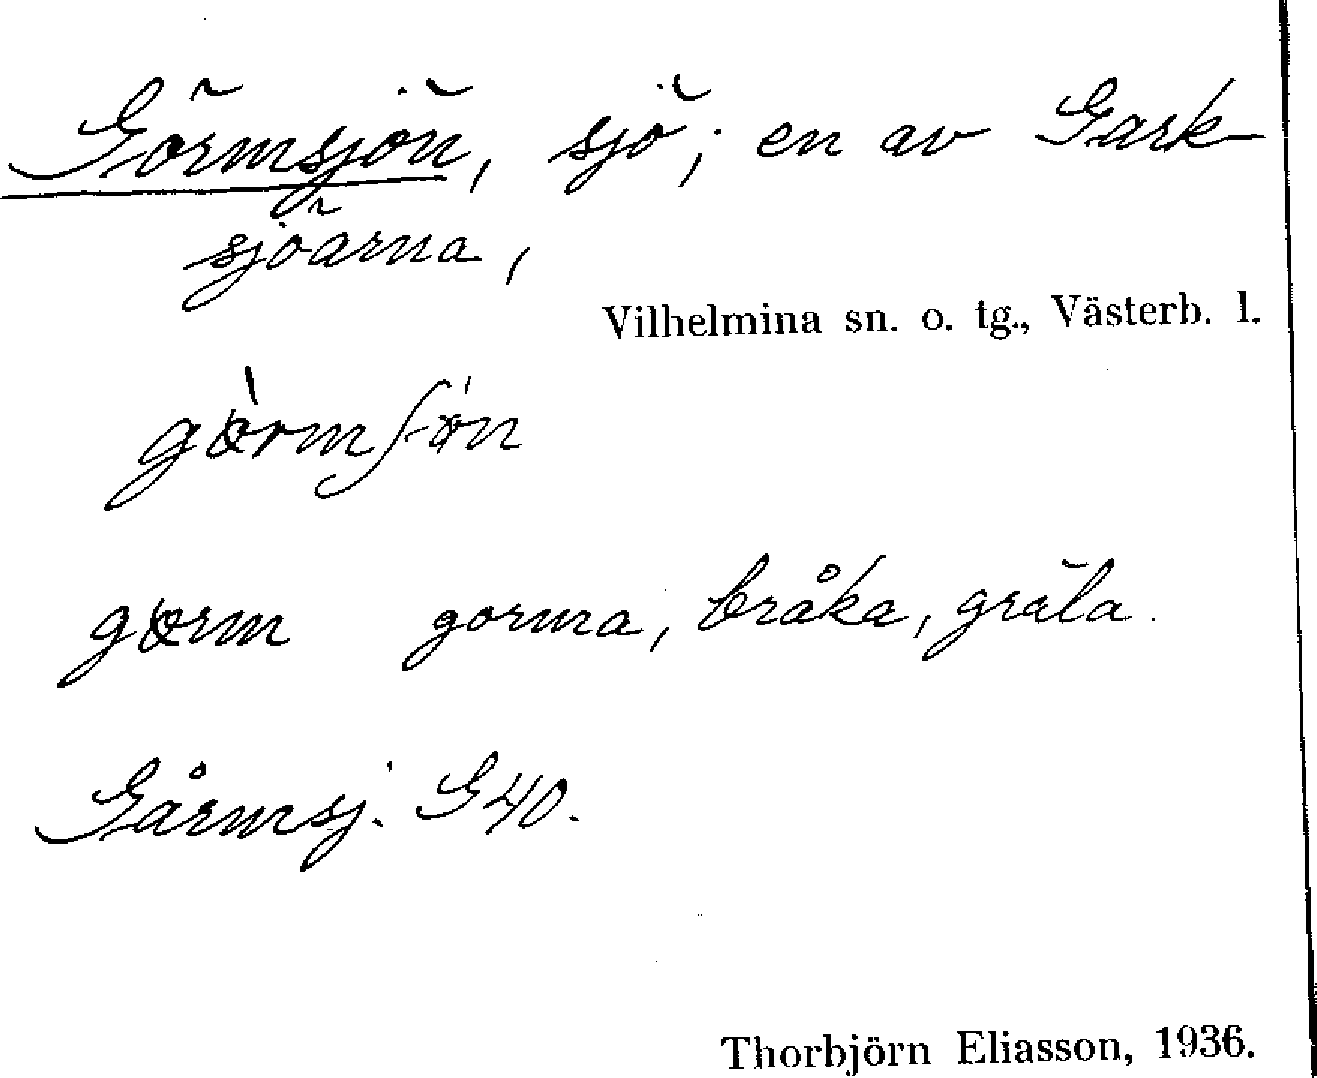 Görmsjön, sjö; en av Gark-
sjöarna,
Vilhelmina sn. o. tg., Västerb. l.
gorma, bråka, gräla.
Gårmsj. G40.
Thorbjörn Eliasson, 1936.